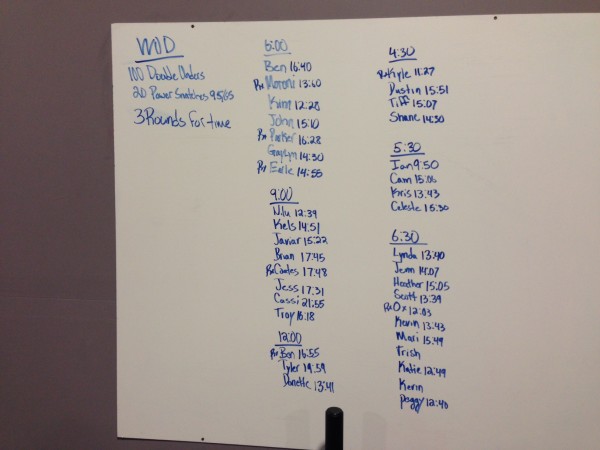 WOD
100 Double Unders
20 Power Snatches 95/65
3 Rounds For time
6:00
Ben 16:40
Rx Moroni 13:60
Kim 12:28
John 15:10
Rx Parker 16:28
14:30
Rx Earle 14:55
9:00
12:39
Kels 14:51
Javiar 15:22
Brian 17:45
Rx 17:48
Jess 17:31
Cassi 21:55
Troy 16:18
12:00
Rx Ben 16:55
Tyler 19:59
Danette 13:41
4:30
Rx Kyle 11:27
Dustin 15:51
Tiff 15:07
Shane 14:30
5:30
Ian 9:50
Cam 15:05
Kris 13:43
Celeste 15:30
6:30
Lynda 13:40
Jenn 14:07
Heather 15:05
Scott 13:39
Rx Ox 12:03
Kevin 13:43
Mari 15:49
Trish
Katie 12:49
Kevin
Peggy 12:40